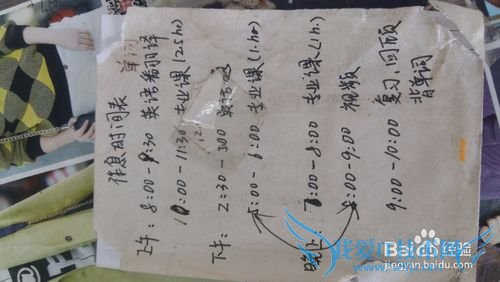 作息时间表
单词
上午: 8:00-9:30 英语看翻译
10:00-11:30 专业课(2.5h)
下午: 2:30-
5:00-6:00 专业课(1.h)
晚上: 7:00-8:00 专业课(1h)
8:00-9:00 视频
9:00-10:00 复习、回顾
背单词
Baidu经验
jingyan.baidu.com